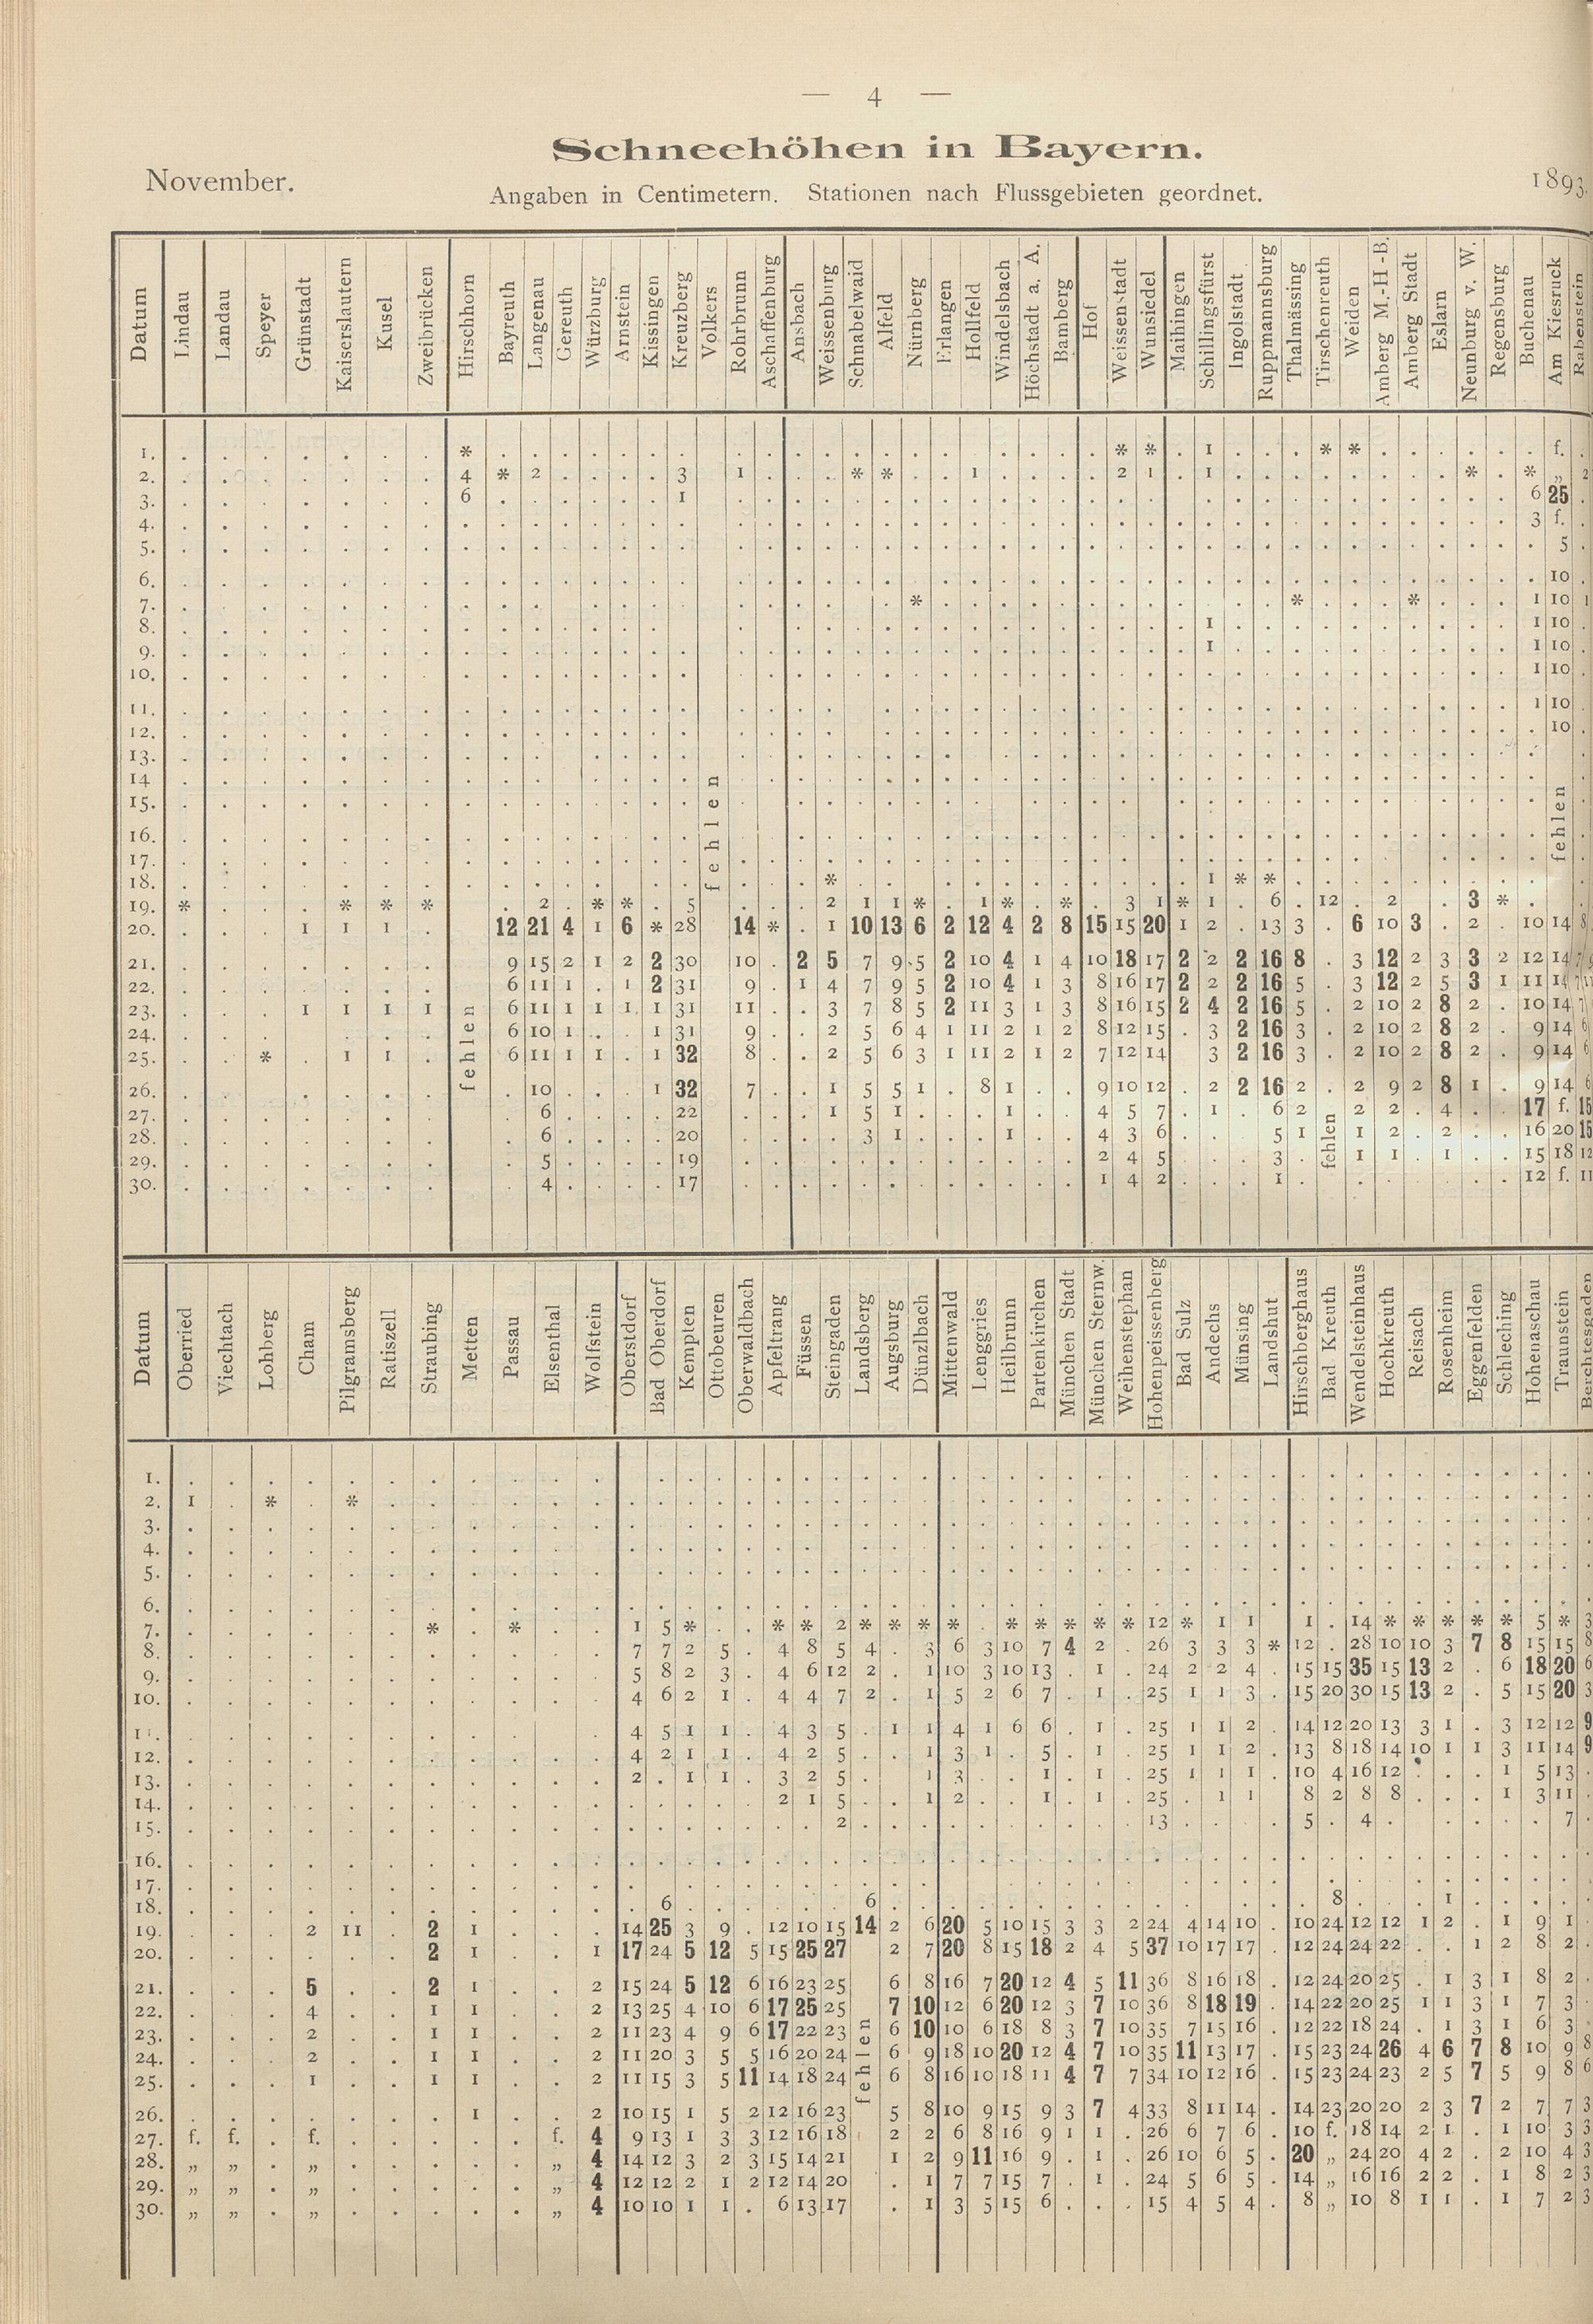 — 4 —
Schneehöhen in Bayern.
November.
Angaben in Centimetern. Stationen nach Flussgebieten geordnet.
1893.
Datum Lindau Landau Speyer Grünstadt Kaiserslautern Kusel Zweibrücken Hirschhorn Bayreuth Langenau Gereuth Würzburg Arnstein Kissingen Kreuzberg Volkers Rohrbrunn Aschaffenburg Ansbach Weissenburg Schnabelwaid Alfeld Nürnberg Erlangen Hollfeld Windelsbach Höchstadt a. A. Bamberg Hof Weissenstadt Wunsiedel Maihingen Schillingsfürst Ingolstadt Ruppmannsburg Thalmässing Tirschenreuth Weiden Amberg M.-H-B. Amberg Stadt Eslarn Neunburg v. W. Regensburg Buchenau Am Kiesruck Rabenstein
1. * * * 1 * * f.
2. 4 * 2 3 1 * * 1 2 1 1 * * „ 2
3. 6 1 6 25
4. 3 f.
5. 5
6. 10
7. * * * 1 10 1
8. 1 1 10
9. 1 1 10
10. 1 10
11. 1 10
12. 10
13.
14
15.
16.
17.
18. * 1 * *
19. * * * * 2 * * 5 2 1 1 * 1 * * 3 1 * 1 6 12 2 3 *
20. 1 1 1 12 21 4 1 6 * 28 14 * 1 10 13 6 2 12 4 2 8 15 15 20 1 2 13 3 6 10 3 2 10 14 8
21. 9 15 2 1 2 2 30 10 2 5 7 9 5 2 10 4 1 4 10 18 17 2 2 2 16 8 3 12 2 3 3 2 12 14
22. 6 11 1 1 2 31 9 1 4 7 9 5 2 10 4 1 3 8 16 17 2 2 2 16 5 3 12 2 5 3 1 11 14
23. 1 1 1 1 6 11 1 1 1 1 31 11 3 7 8 5 2 11 3 1 3 8 16 15 2 4 2 16 5 2 10 2 8 2 10 14
24. 6 10 1 1 31 9 2 5 6 4 1 11 2 1 2 8 12 15 3 2 16 3 2 10 2 8 2 9 14 6
25. * 1 1 6 11 1 1 1 32 8 2 5 6 3 1 11 2 1 2 7 12 14 3 2 16 3 2 10 2 8 2 9 14 6
26. 10 1 32 7 1 5 5 1 8 1 9 10 12 2 2 16 2 2 9 2 8 1 9 14 6
27. 6 22 1 5 1 1 4 5 7 1 6 2 2 2 4 17 f. 15
28. 6 20 3 1 1 4 3 6 5 1 1 2 2 16 20 15
29. 5 19 2 4 5 3 1 1 1 15 18 12
30. 4 17 1 4 2 1 12 f. 11
fehlen
fehlen
fehlen
fehlen
Datum Oberried Viechtach Lohberg Cham Pilgramsberg Ratiszell Straubing Metten Passau Elsenthal Wolfstein Oberstdorf Bad Oberdorf Kempten Ottobeuren Oberwaldbach Apfeltrang Füssen Steingaden Landsberg Augsburg Dünzlbach Mittenwald Lenggries Heilbrunn Partenkirchen München Stadt München Sternw. Weihenstephan Hohenpeissenberg Bad Sulz Andechs Münsing Landshut Hirschberghaus Bad Kreuth Wendelsteinhaus Hochkreuth Reisach Rosenheim Eggenfelden Schleching Hohenaschau Traunstein Berchtesgaden
1.
2. 1 * *
3.
4.
5.
6.
7. * * 1 5 * * * 2 * * * * * * * * * 12 * 1 1 1 14 * * * * * 5 * 3
8. 7 7 2 5 4 8 5 4 3 6 3 10 7 4 2 26 3 3 3 * 12 28 10 10 3 7 8 15 15 8
9. 5 8 2 3 4 6 12 2 1 10 3 10 13 1 24 2 2 4 15 15 35 15 13 2 6 18 20 6
10. 4 6 2 1 4 4 7 2 1 5 2 6 7 1 25 1 1 3 15 20 30 15 13 2 5 15 20 3
11. 4 5 1 1 4 3 5 1 1 4 1 6 6 1 25 1 1 2 14 12 20 13 3 1 3 12 12 9
12. 4 2 1 1 4 2 5 1 3 1 5 1 25 1 1 2 13 8 18 14 10 1 1 3 11 14 9
13. 2 1 1 3 2 5 1 3 1 1 25 1 1 1 10 4 16 12 1 5 13
14. 2 1 5 1 2 1 1 25 1 1 8 2 8 8 1 3 11
15. 2 13 5 4 7
16.
17.
18. 6 6 8 1
19. 2 11 2 1 14 25 3 9 12 10 15 14 2 6 20 5 10 15 3 3 2 24 4 14 10 10 24 12 12 1 2 1 9 1
20. 2 1 1 17 24 5 12 5 15 25 27 2 7 20 8 15 18 2 4 5 37 10 17 17 12 24 24 22 1 2 8 2
21. 5 2 1 2 15 24 5 12 6 16 23 25 6 8 16 7 20 12 4 5 11 36 8 16 18 12 24 20 25 1 3 1 8 2
22. 4 1 1 2 13 25 4 10 6 17 25 25 7 10 12 6 20 12 3 7 10 36 8 18 19 14 22 20 25 1 1 3 1 7 3
23. 2 1 1 2 11 23 4 9 6 17 22 23 6 10 10 6 18 8 3 7 10 35 7 15 16 12 22 18 24 1 3 1 6 3
24. 2 1 1 2 11 20 3 5 5 16 20 24 6 9 18 10 20 12 4 7 10 35 11 13 17 15 23 24 26 4 6 7 8 10 9 8
25. 1 1 1 2 11 15 3 5 11 14 18 24 6 8 16 10 18 11 4 7 7 34 10 12 16 15 23 24 23 2 5 7 5 9 8 6
26. 1 2 10 15 1 5 2 12 16 23 5 8 10 9 15 9 3 7 4 33 8 11 14 14 23 20 20 2 3 7 2 7 7 3
27. f. f. f. f. 4 9 13 1 3 3 12 16 18 2 2 6 8 16 9 1 1 26 6 7 6 10 f. 18 14 2 1 1 10 3 3
28. „ „ „ „ 4 14 12 3 2 3 15 14 21 1 2 9 11 16 9 1 26 10 6 5 20 „ 24 20 4 2 2 10 4 3
29. „ „ „ „ 4 12 12 2 1 2 12 14 20 1 7 7 15 7 1 24 5 6 5 14 „ 16 16 2 2 1 8 2 3
30. „ „ „ „ 4 10 10 1 1 6 13 17 1 3 5 15 6 15 4 5 4 8 „ 10 8 1 1 1 7 2 3
fehlen